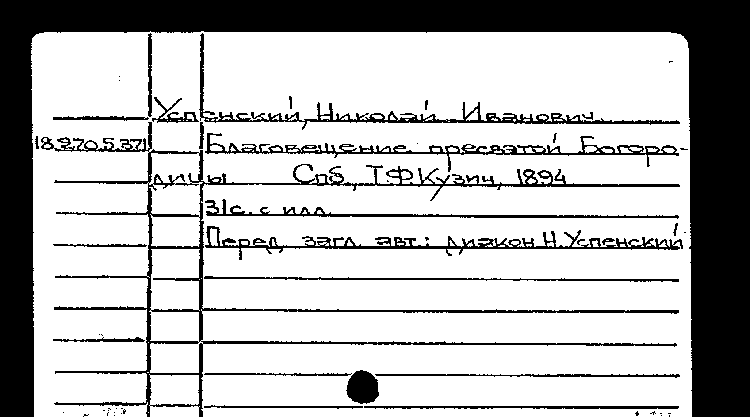 Успенский, Николай Иванович.
18.270.5.371 Благовещение пресвятой Богоро-
дицы. Спб., Т.Ф.Кузин, 1894
31с. с илл.
Перед загл. авт.: диакон Н.Успенский